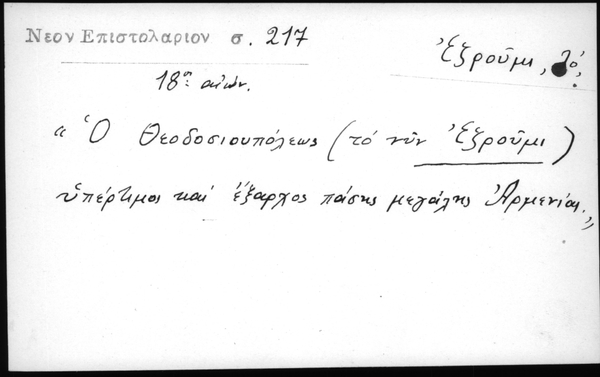 Νεον Επιστολαριον σ. 217
Ἐξροῦμι, τό.
18ος αἰών.
« Ὁ Θεοδοσιουπόλεως (τό νῦν Ἐξροῦμι)
ὑπέρτιμος καί ἔξαρχος πάσης μεγάλης Ἀρμενίας. »